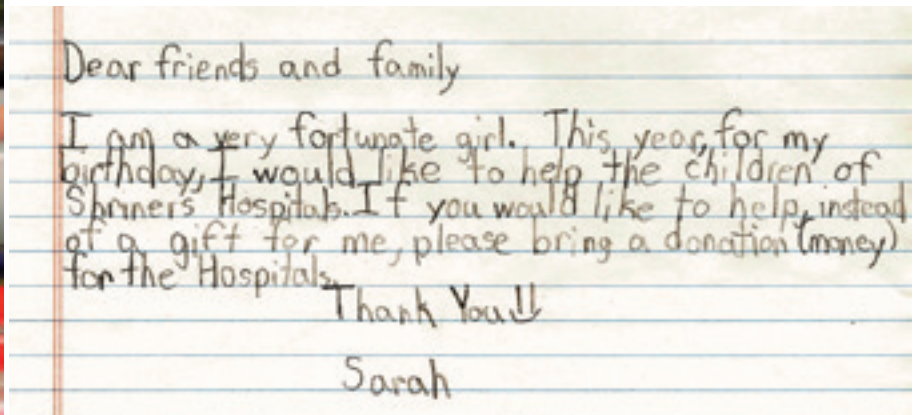 Dear friends and family
I am a very fortunate girl. This year, for my
birthday, I would like to help the children of
Shriner's Hospitals. If you would like to help, instead
of a gift for me, please bring a donation (money)
for the Hospitals.
Thank You!!
Sarah